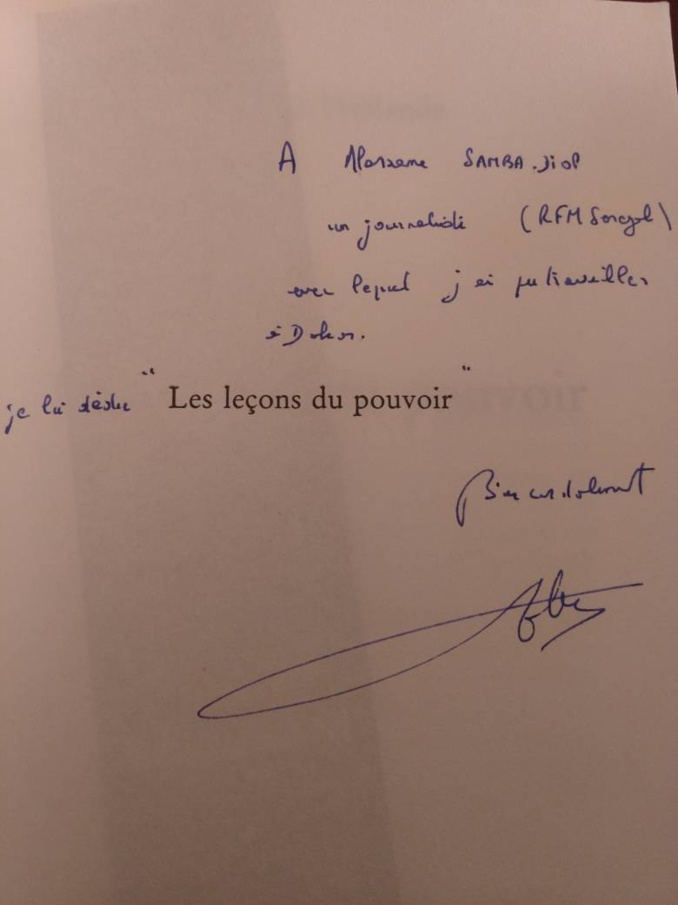 A Alassane SAMBA.Diop
un journaliste (RFM Senegal)
avec lequel j'ai pu travailler
à Dakar.
je lui dédie " Les leçons du pouvoir "
Bien cordialement